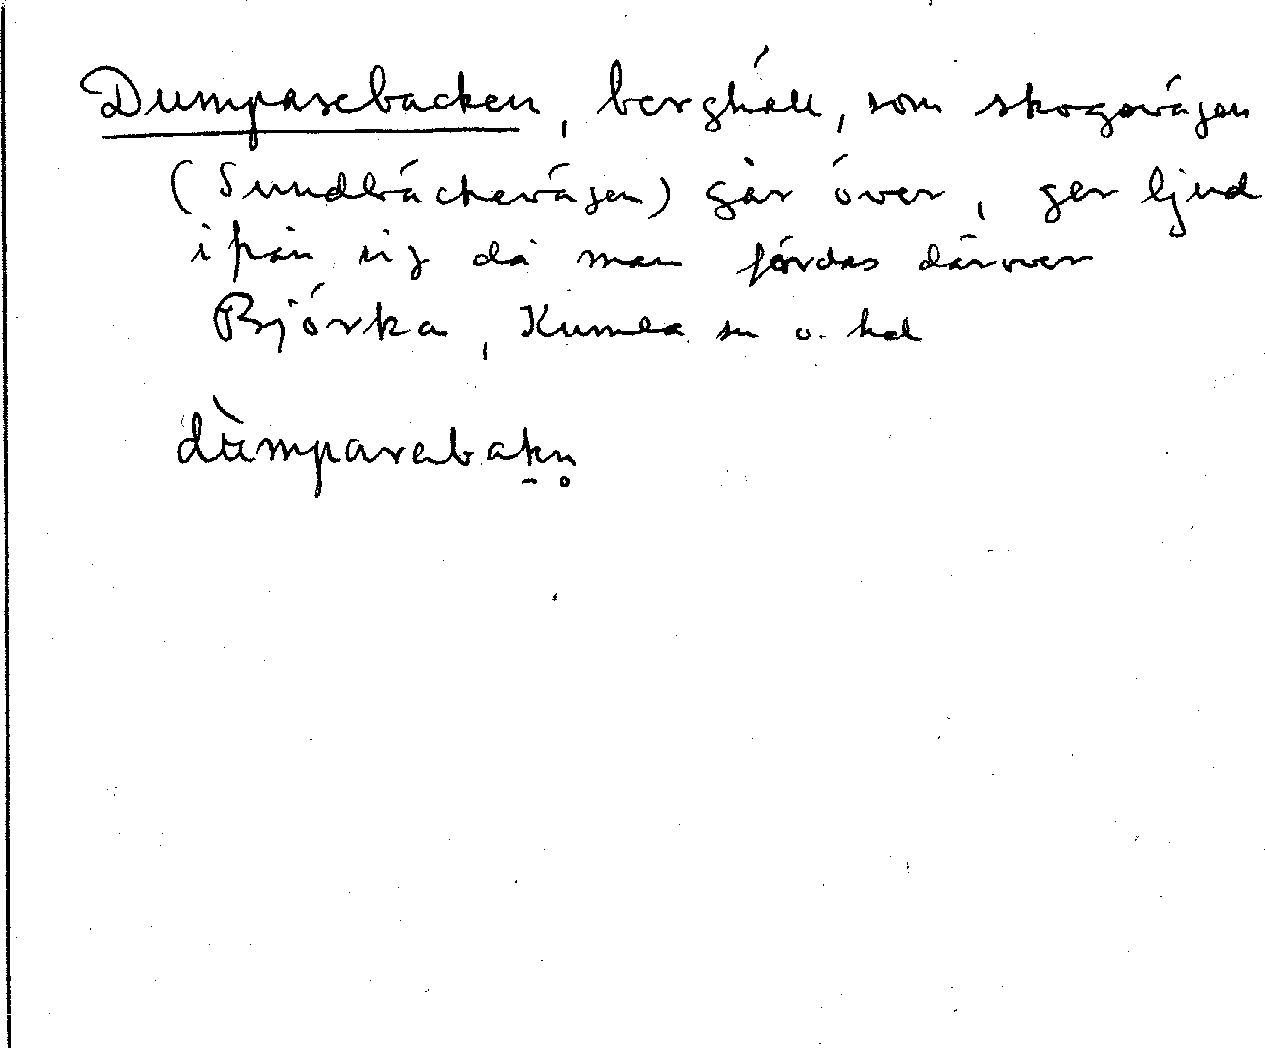 Dumparebacken, berghäll, som skogsvägen
(Sundbäckevägen) går över, ger ljud
ifrån sig då man färdas däröver
Björka, Kumla sn o. hd
dùmparabakn̥